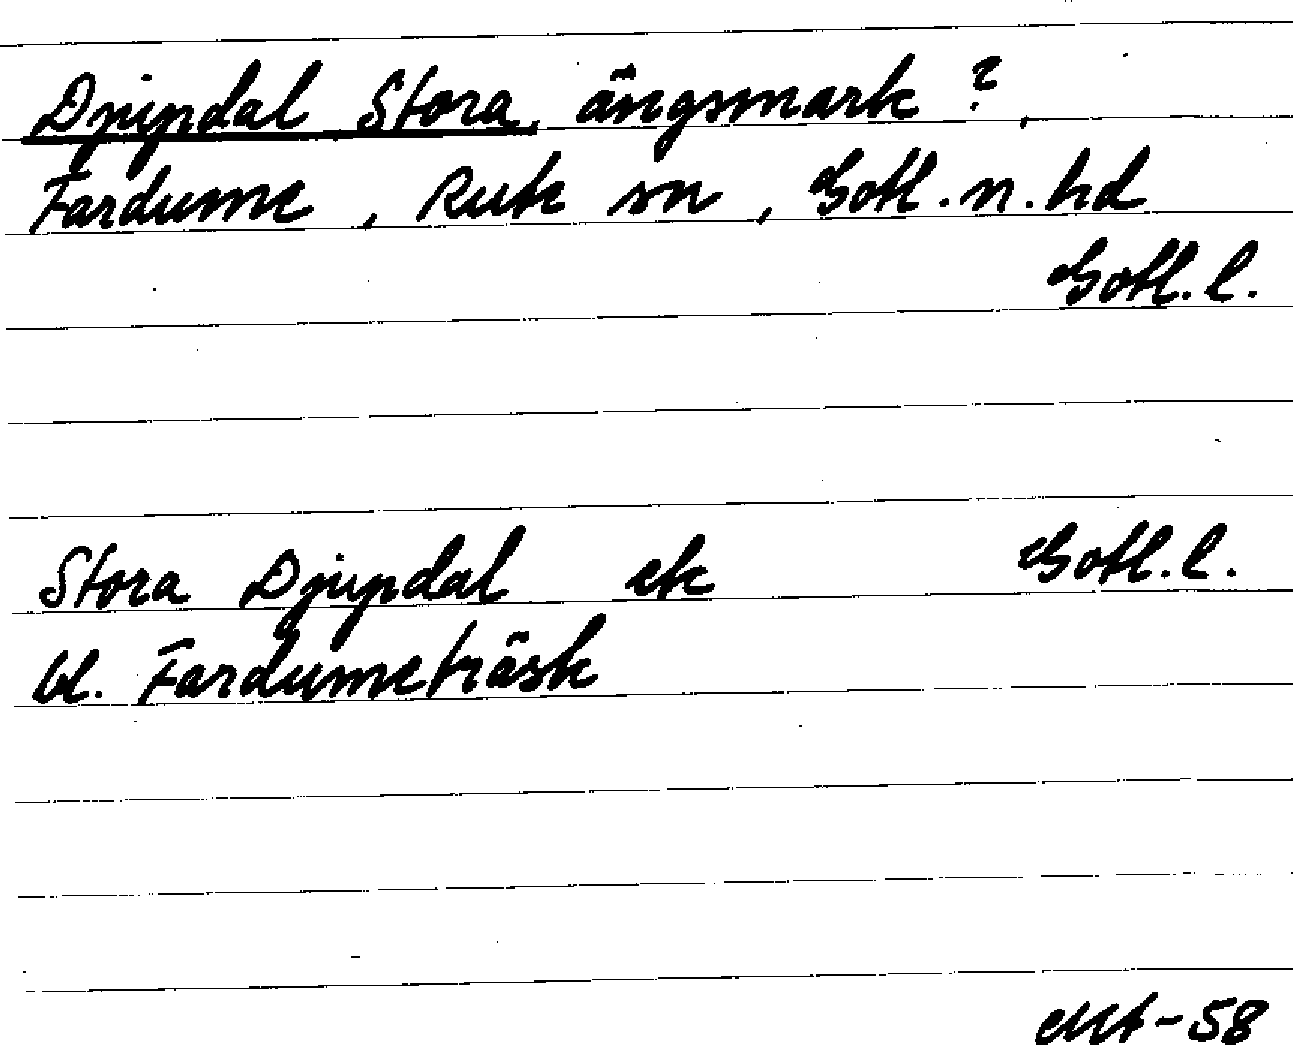 Djupdal Stora, ängsmark?,
Fardume, Rute sn, Gotl. n. hd
Gotl. l.
Stora Djupdal ek Gotl. l.
bl. Fardumeträsk
-58